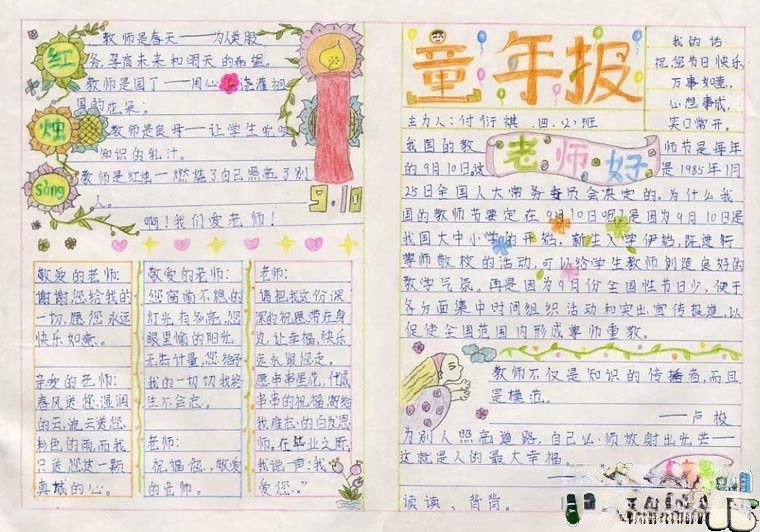 红
烛
Song
教师是春天——为人类服
务,孕育未来和明天的希望。
教师是园丁——用心浇灌祖
国的花朵。
教师是良母——让学生吮吸
知识的乳汁。
教师是红烛—燃烧了自己照亮了别
人。
啊!我们爱老师!
9.10
敬爱的老师:
谢谢您给我的
一切,愿您永远
快乐如意。
亲爱的老师:
春风送您湿润
的云,流云送您
粉色的雨,而我
只送您这一颗
真诚的心。
敬爱的老师:
您窗前不熄的
灯光,有多亮,您
眼里愉的阳光
无法计量,您给予
我的一切切我终
生不会忘。
老师:
祝福您,敬爱
的老师。
老师:
请把我这份深
深的祝愿带在身
边,让幸福、快乐
永永跟您走。
愿串串星花,伴成
串串的祝福,献给
我难忘的白发恩
师。在毕业之际
我说一声:“我
爱您。”
童年报
主办人:付衍祺 四.(2)班
我的话
祝您节日快乐
万事如意,
心想事成,
笑口常开。
老师好
我国的教师节是每年
的9月10日,这是1985年1月
25日全国人大常务委员会决定的。为什么我
国的教师节要定在9月10日呢?是因为9月10日是
我国大中小学的开始,新生入学伊始,既进行
尊师敬校的活动,可以给学生教师创造良好的
教学气氛。再是因为9月份全国性节日少,便于
各方面集中时间组织活动和突出宣传报道,以
促使全国范围内形成尊师重教。
教师不仅是知识的传播者,而且
是模范。
——卢梭
为别人照亮道路,自己必须放射出光芒——
这就是人的最大幸福。
读读、背背。